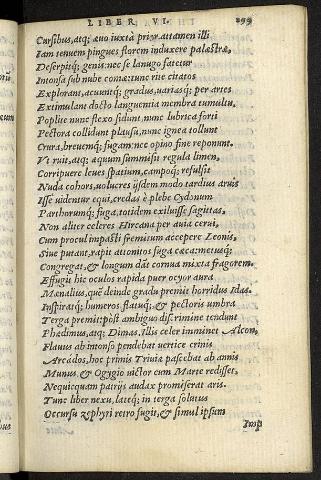 LIBER VI. 299
Cursibus, atq; auo iuxtà prior. attamen illi
Iam tenuem pingues florem induxere palæstræ,
Deserpitq; genis: nec se lanugo fatetur
Intonsæ sub nube comæ: tunc rite citatos
Explorant, acuuntq; gradus, uariasq; per artes
Extimulant docto languentia membra tumultu,
Poplite nunc flexo sidunt, nunc lubrica forti
Pectora collidunt plausu, nunc ignea tollunt
Crura, breuemq; fugam nec opino fine reponunt.
Vt ruit, atq; æquum summisit regula limen,
Corripuere leues spatium, campoq; refulsit
Nuda cohors, uolucres ijsdem modo tardius aruis
Isse uidentur equi, credas è plebe Cydonum
Parthorumq; fuga, totidem exiluisse sagittas,
Non aliter celeres Hircana per auia cerui,
Cum procul impasti fremitum accepere Leonis,
Siue putant, rapit attonitos fuga cæca metusq;
Congregat, & longum dāt cornua mixta fragorem.
Effugit hic oculos rapida puer ocyor aura
Mænalius, quē deinde gradu premit horridus Idas,
Inspiratq; humeros, flatuq; & pectoris umbra
Terga premit: post ambiguo discrimine tendunt
Phædimus, atq; Dimas, illis celer imminet Alcon,
Flauus ab intonso pendebat uertice crinis
Arcados, hoc primis Triuiæ pascebat ab annis
Munus, & Ogygio uictor cum Marte redisset,
Nequicquam patrijs audax promiserat aris.
Tunc liber nexu, lateq; in terga solutus
Occursu zephyri retro fugit, & simul ipsum
Imp